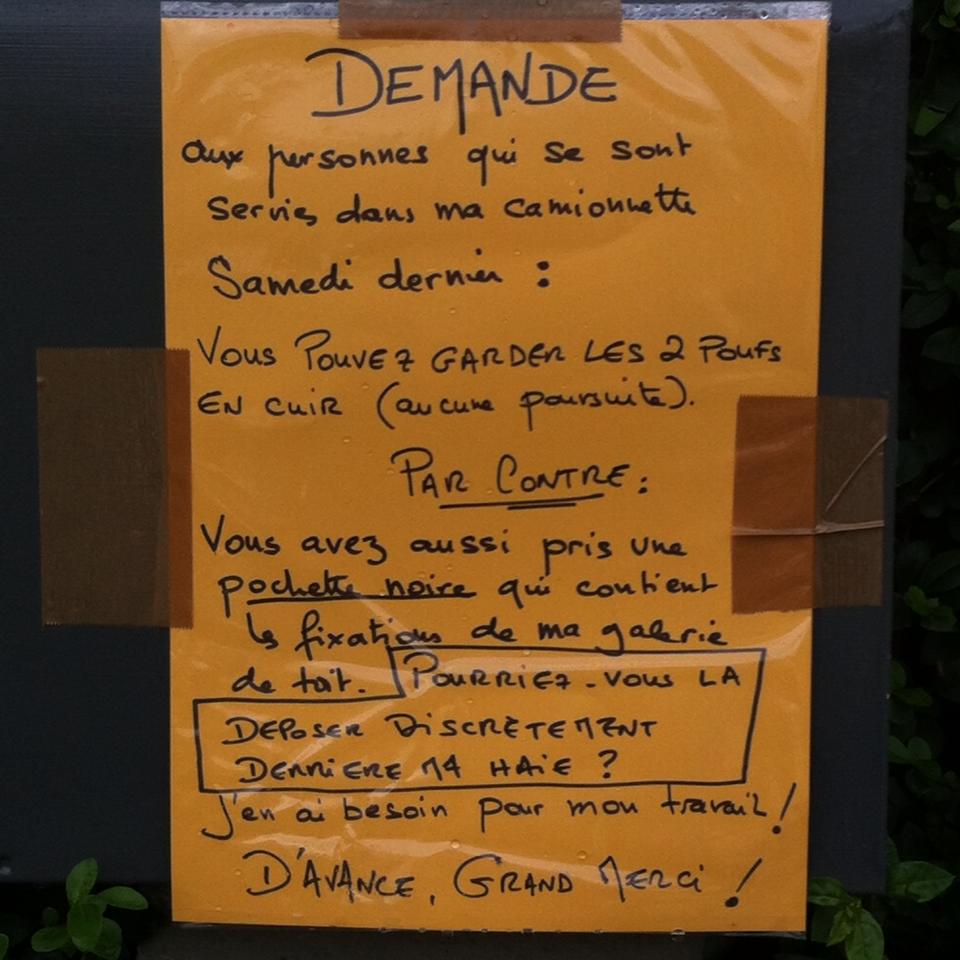 DEMANDE
aux personnes qui se sont
servies dans ma camionnette
Samedi dernier :
Vous POUVEZ GARDER LES 2 POUFS
EN CUIR (aucune poursuite).
PAR CONTRE :
Vous avez aussi pris une
pochette noire qui contient
les fixations de ma galerie
de toit. POURRIEZ-VOUS LA
DEPOSER DISCRÈTEMENT
DERRIERE MA HAIE ?
J'en ai besoin pour mon travail !
D'AVANCE, GRAND MERCI !